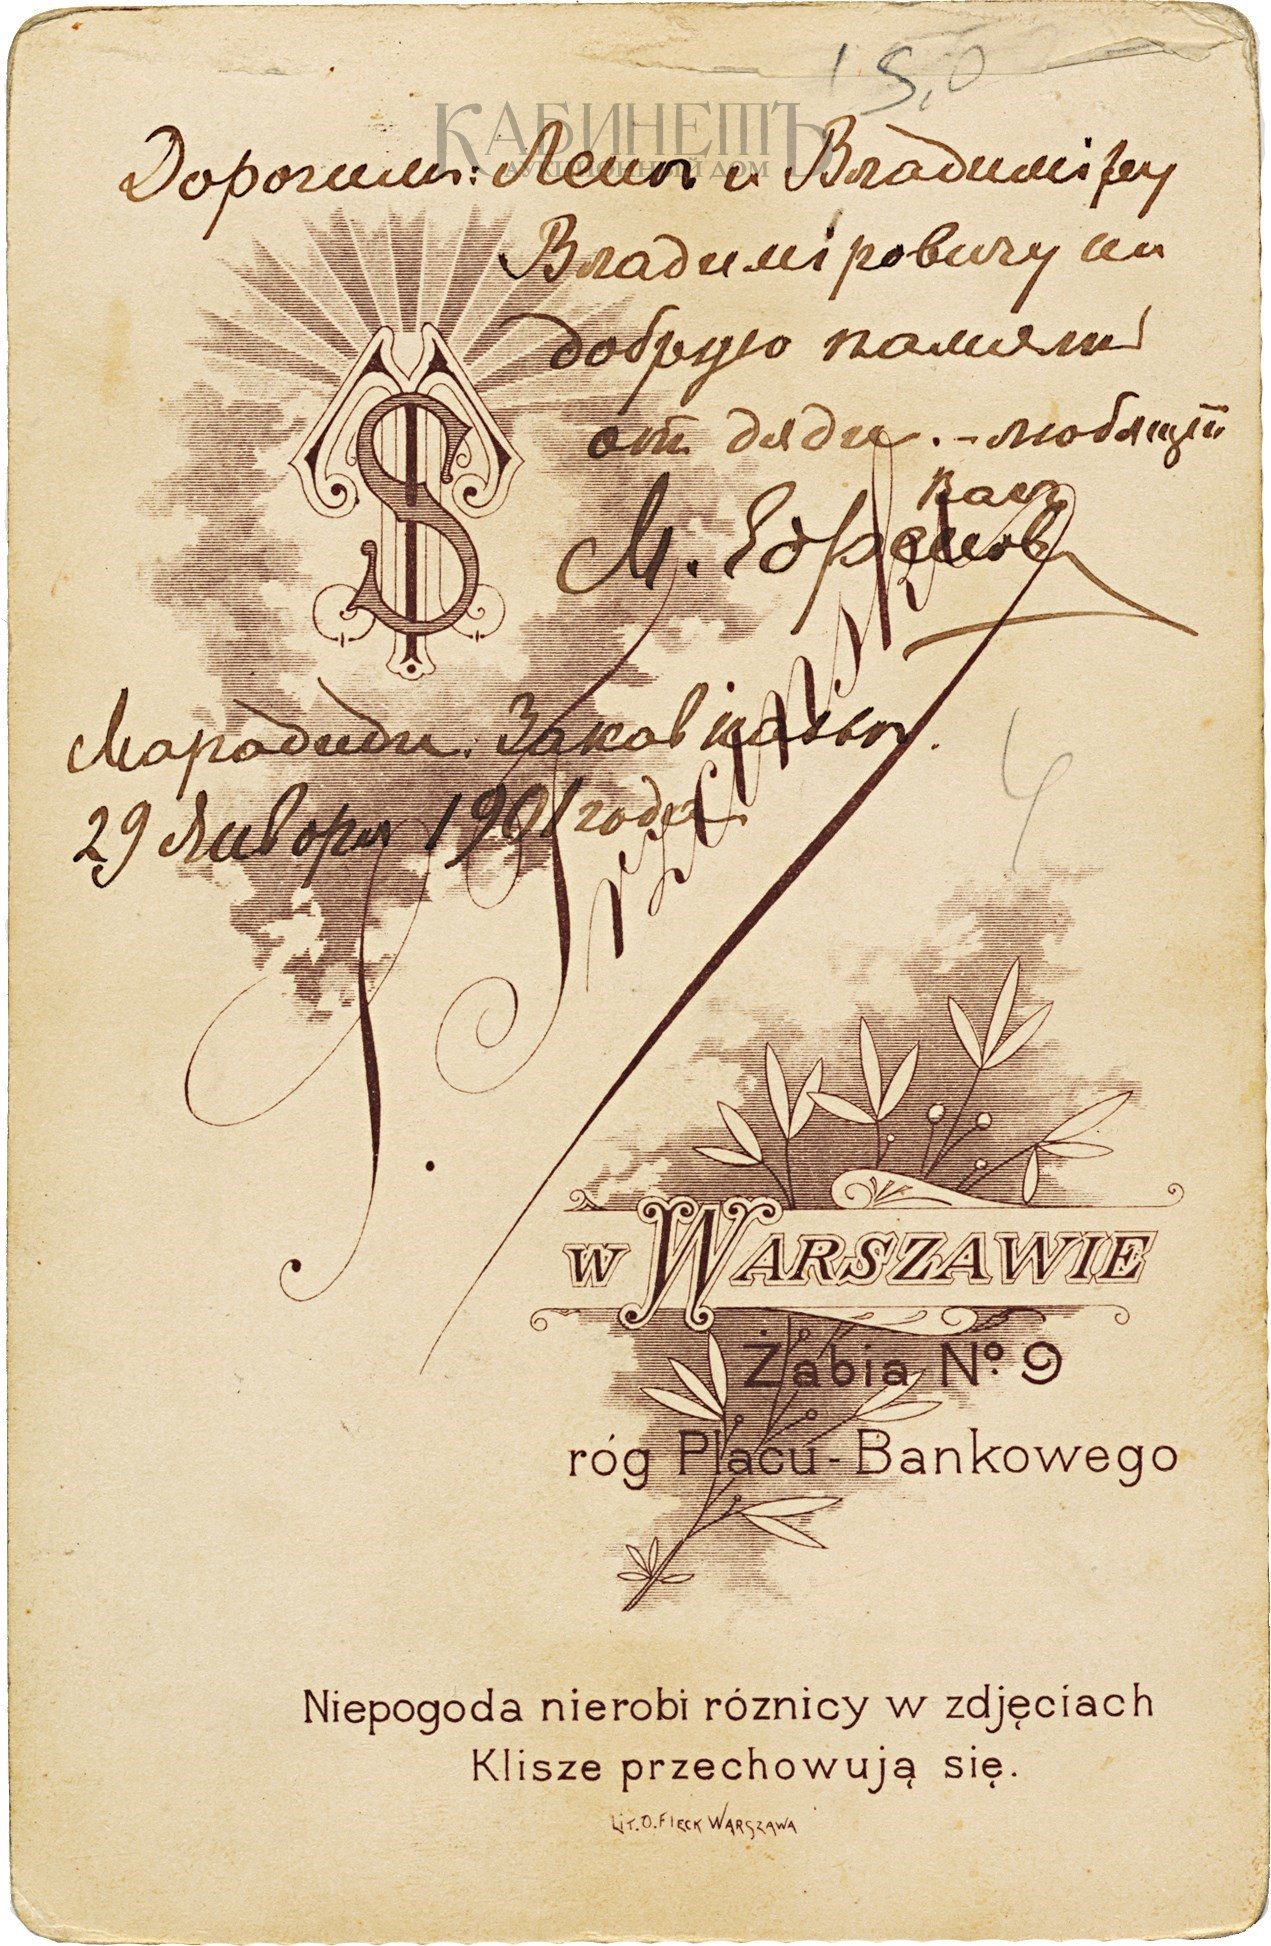 15,0
КАБИНЕТЪ
АУКЦИОННЫЙ ДОМ
Дорогимъ: Лени и Владиміру
Владиміровичу на
добрую память
отъ дяди. - любящій
васъ
М. Ефремов
TS
29 Января 1901 года.
4
J. Trzemeski
w WARSZAWIE
Żabia No. 9
róg Placu-Bankowego
Niepogoda nierobi róznicy w zdjęciach
Klisze przechowują się.
LIT. O. FLECK WARSZAWA